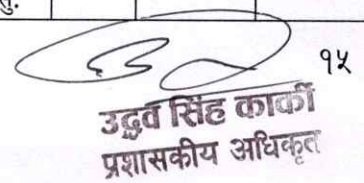 सु.
१५
उद्धव सिंह कार्की
प्रशासकीय अधिकृत